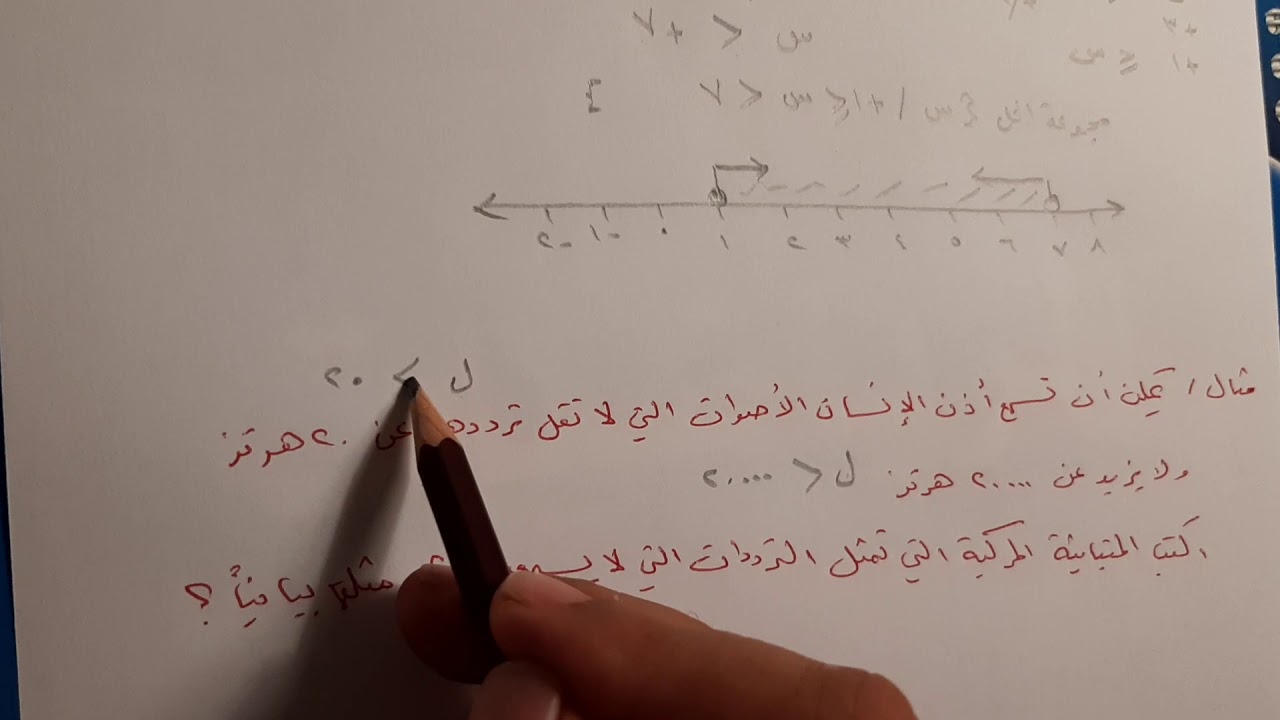 +٣
س > +٧
+١ ≤ س
مجموعة الحل { س / +١ ≤ س < ٧ }
-٢ -١ ٠ ١ ٢ ٣ ٤ ٥ ٦ ٧ ٨
ل < ٢٠
مثال / يمكن أن تسمع أذن الإنسان الأصوات التي لا تقل ترددها عن ٢٠ هرتز
ولا يزيد عن ٢٠٠٠٠ هرتز ل > ٢٠٠٠٠
اكتب المتباينة المركبة التي تمثل الترددات التي لا مثلها بيانياً ؟